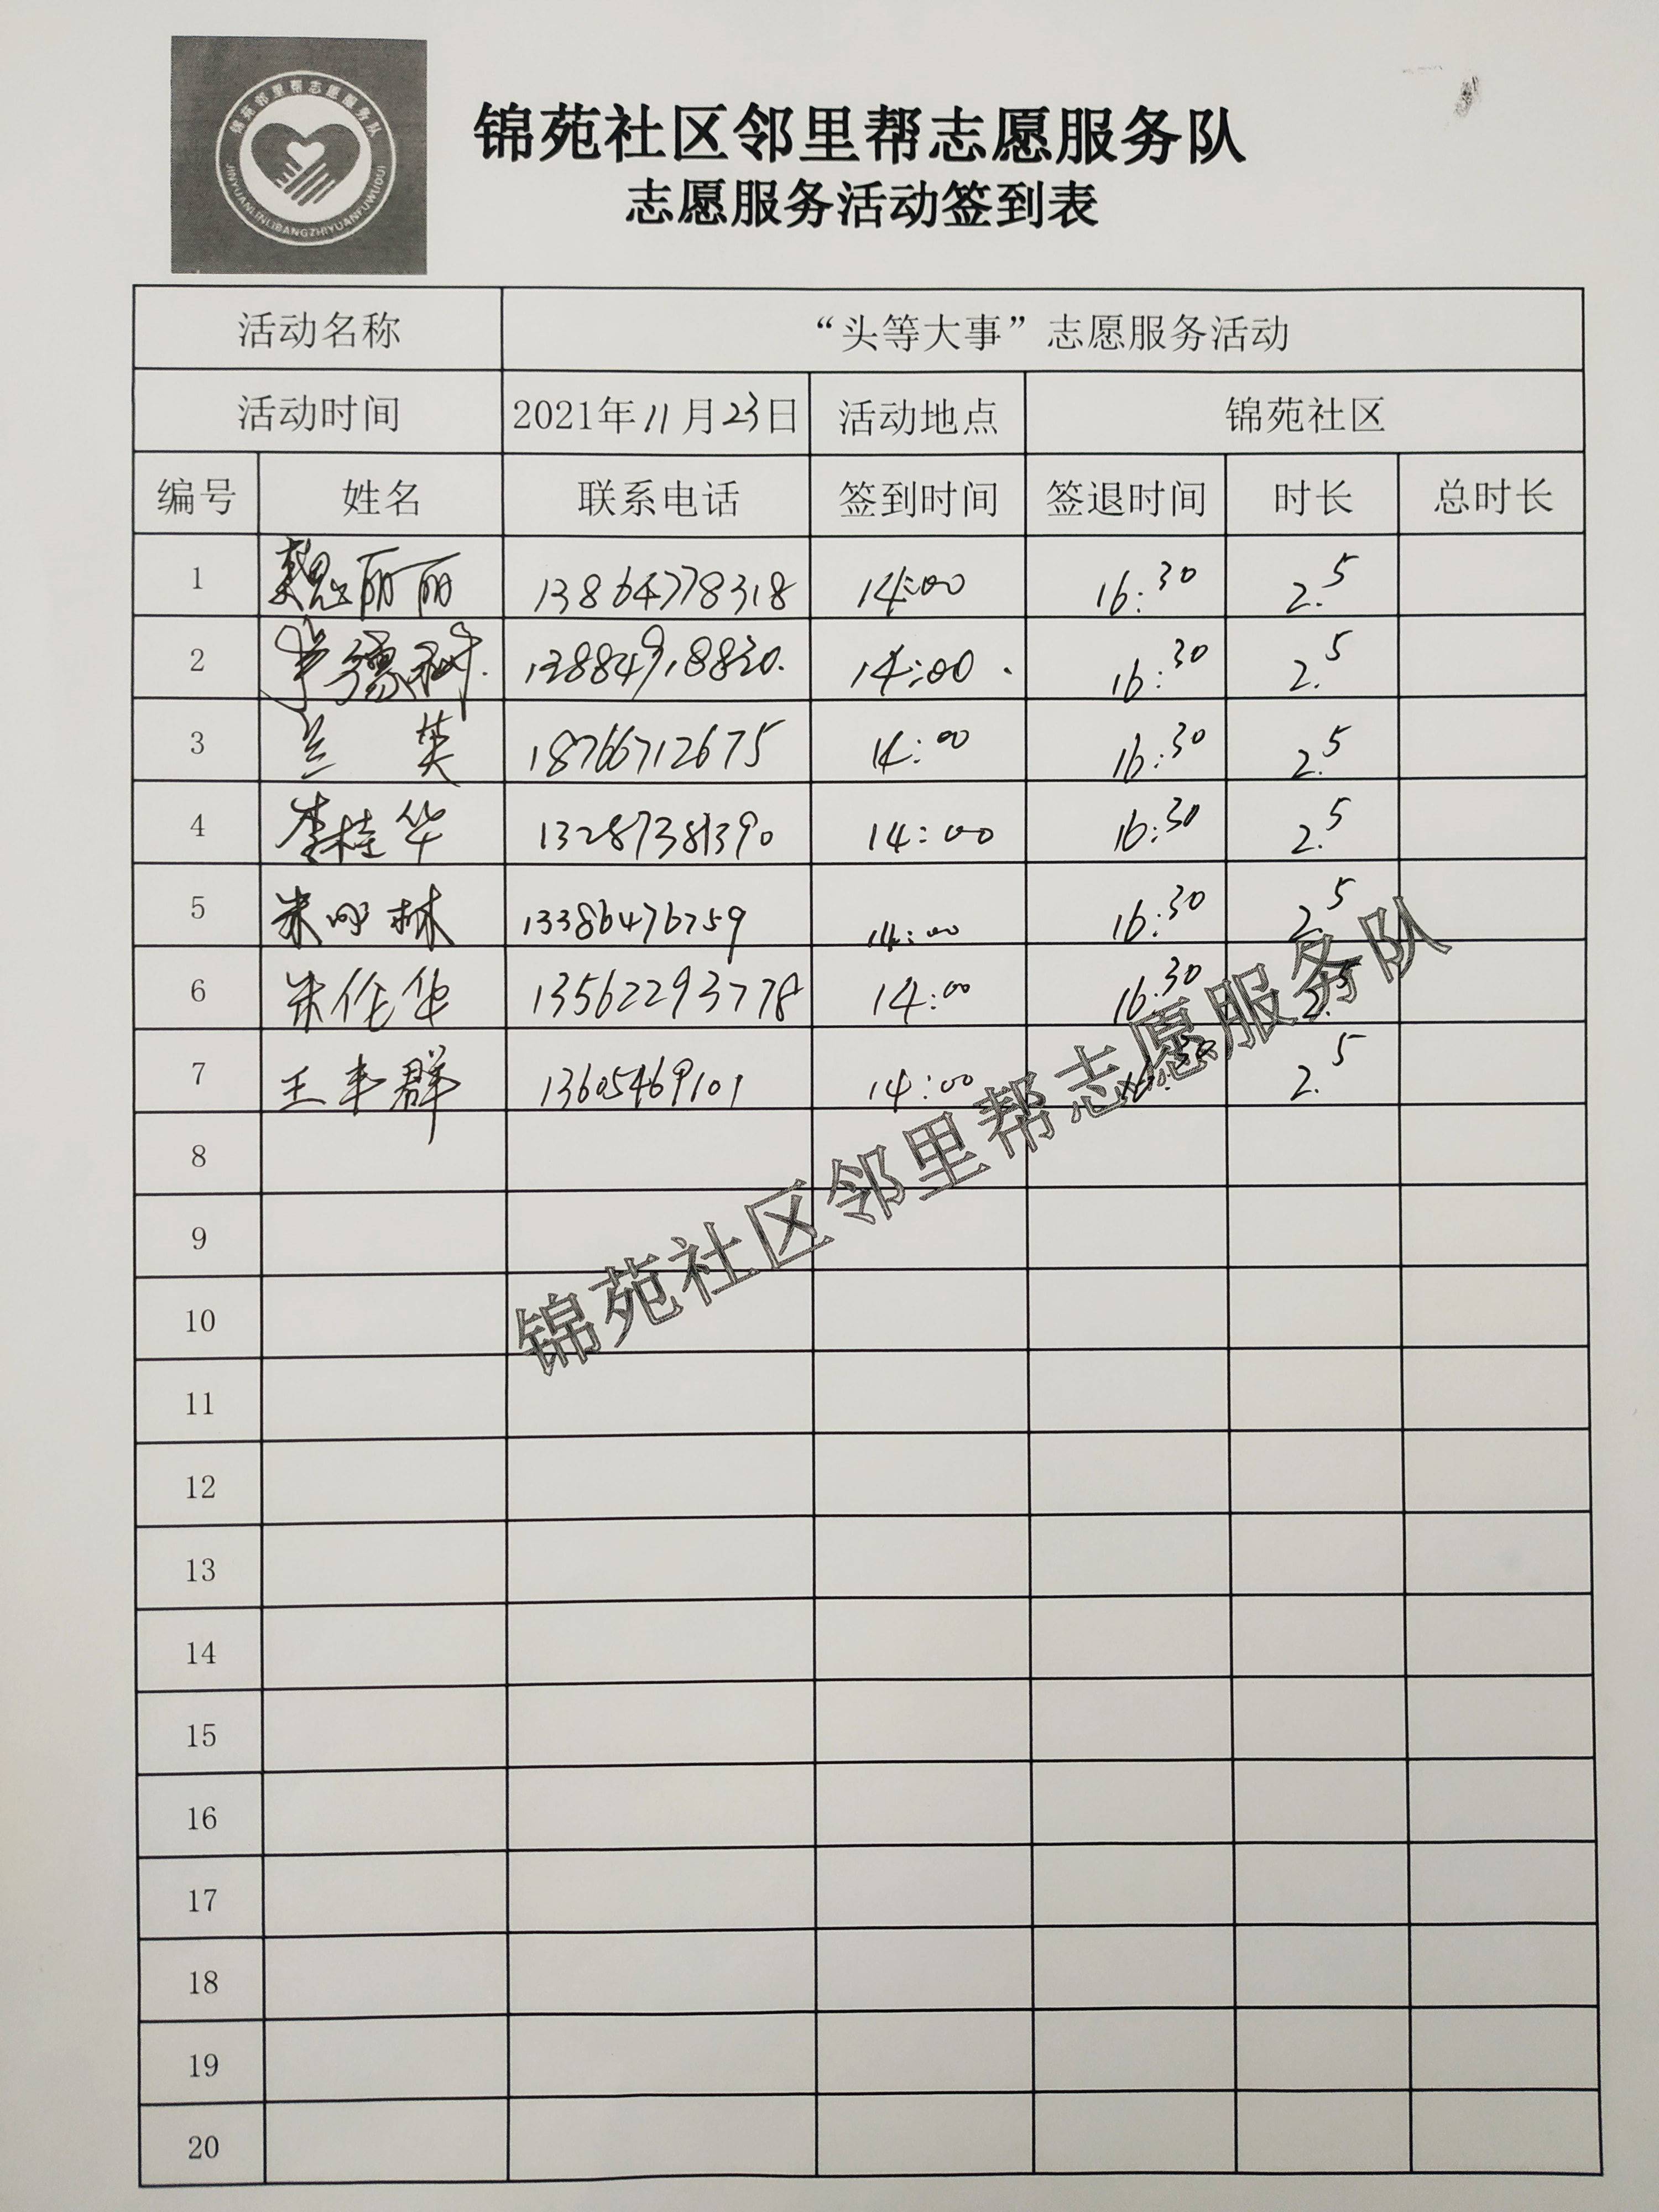 锦苑邻里帮志愿服务队
JINYUANLINLIBANGZHIYUANFUWUDUI
锦苑社区邻里帮志愿服务队
志愿服务活动签到表
活动名称 “头等大事”志愿服务活动
活动时间 2021年11月23日 活动地点 锦苑社区
编号 姓名 联系电话 签到时间 签退时间 时长 总时长
1 魏丽丽 13864778318 14:00 16:30 2.5
2 13884918830. 14:00 16:30 2.5
3 兰英 18766712675 14:00 16:30 2.5
4 李桂华 13287381390 14:00 16:30 2.5
5 朱明林 13386476759 14:00 16:30 2.5
6 朱伦华 13562293778 14:00 16:30 2.5
7 王丰群 13605469101 14:00 16:30 2.5
8
9
10
11
12
13
14
15
16
17
18
19
20
锦苑社区邻里帮志愿服务队